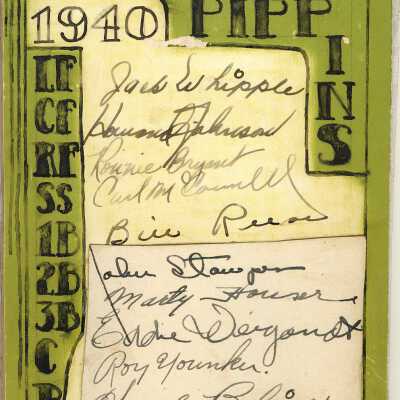 1940 PIPPINS
LF
CF
RF
SS
1B
2B
3B
C
Jack Whipple
Howard Johnson
Ronnie Bryant
Carl McConnell
Bill
John Stamper
Marty Houser
Eddie Weigandt
Roy Younker.